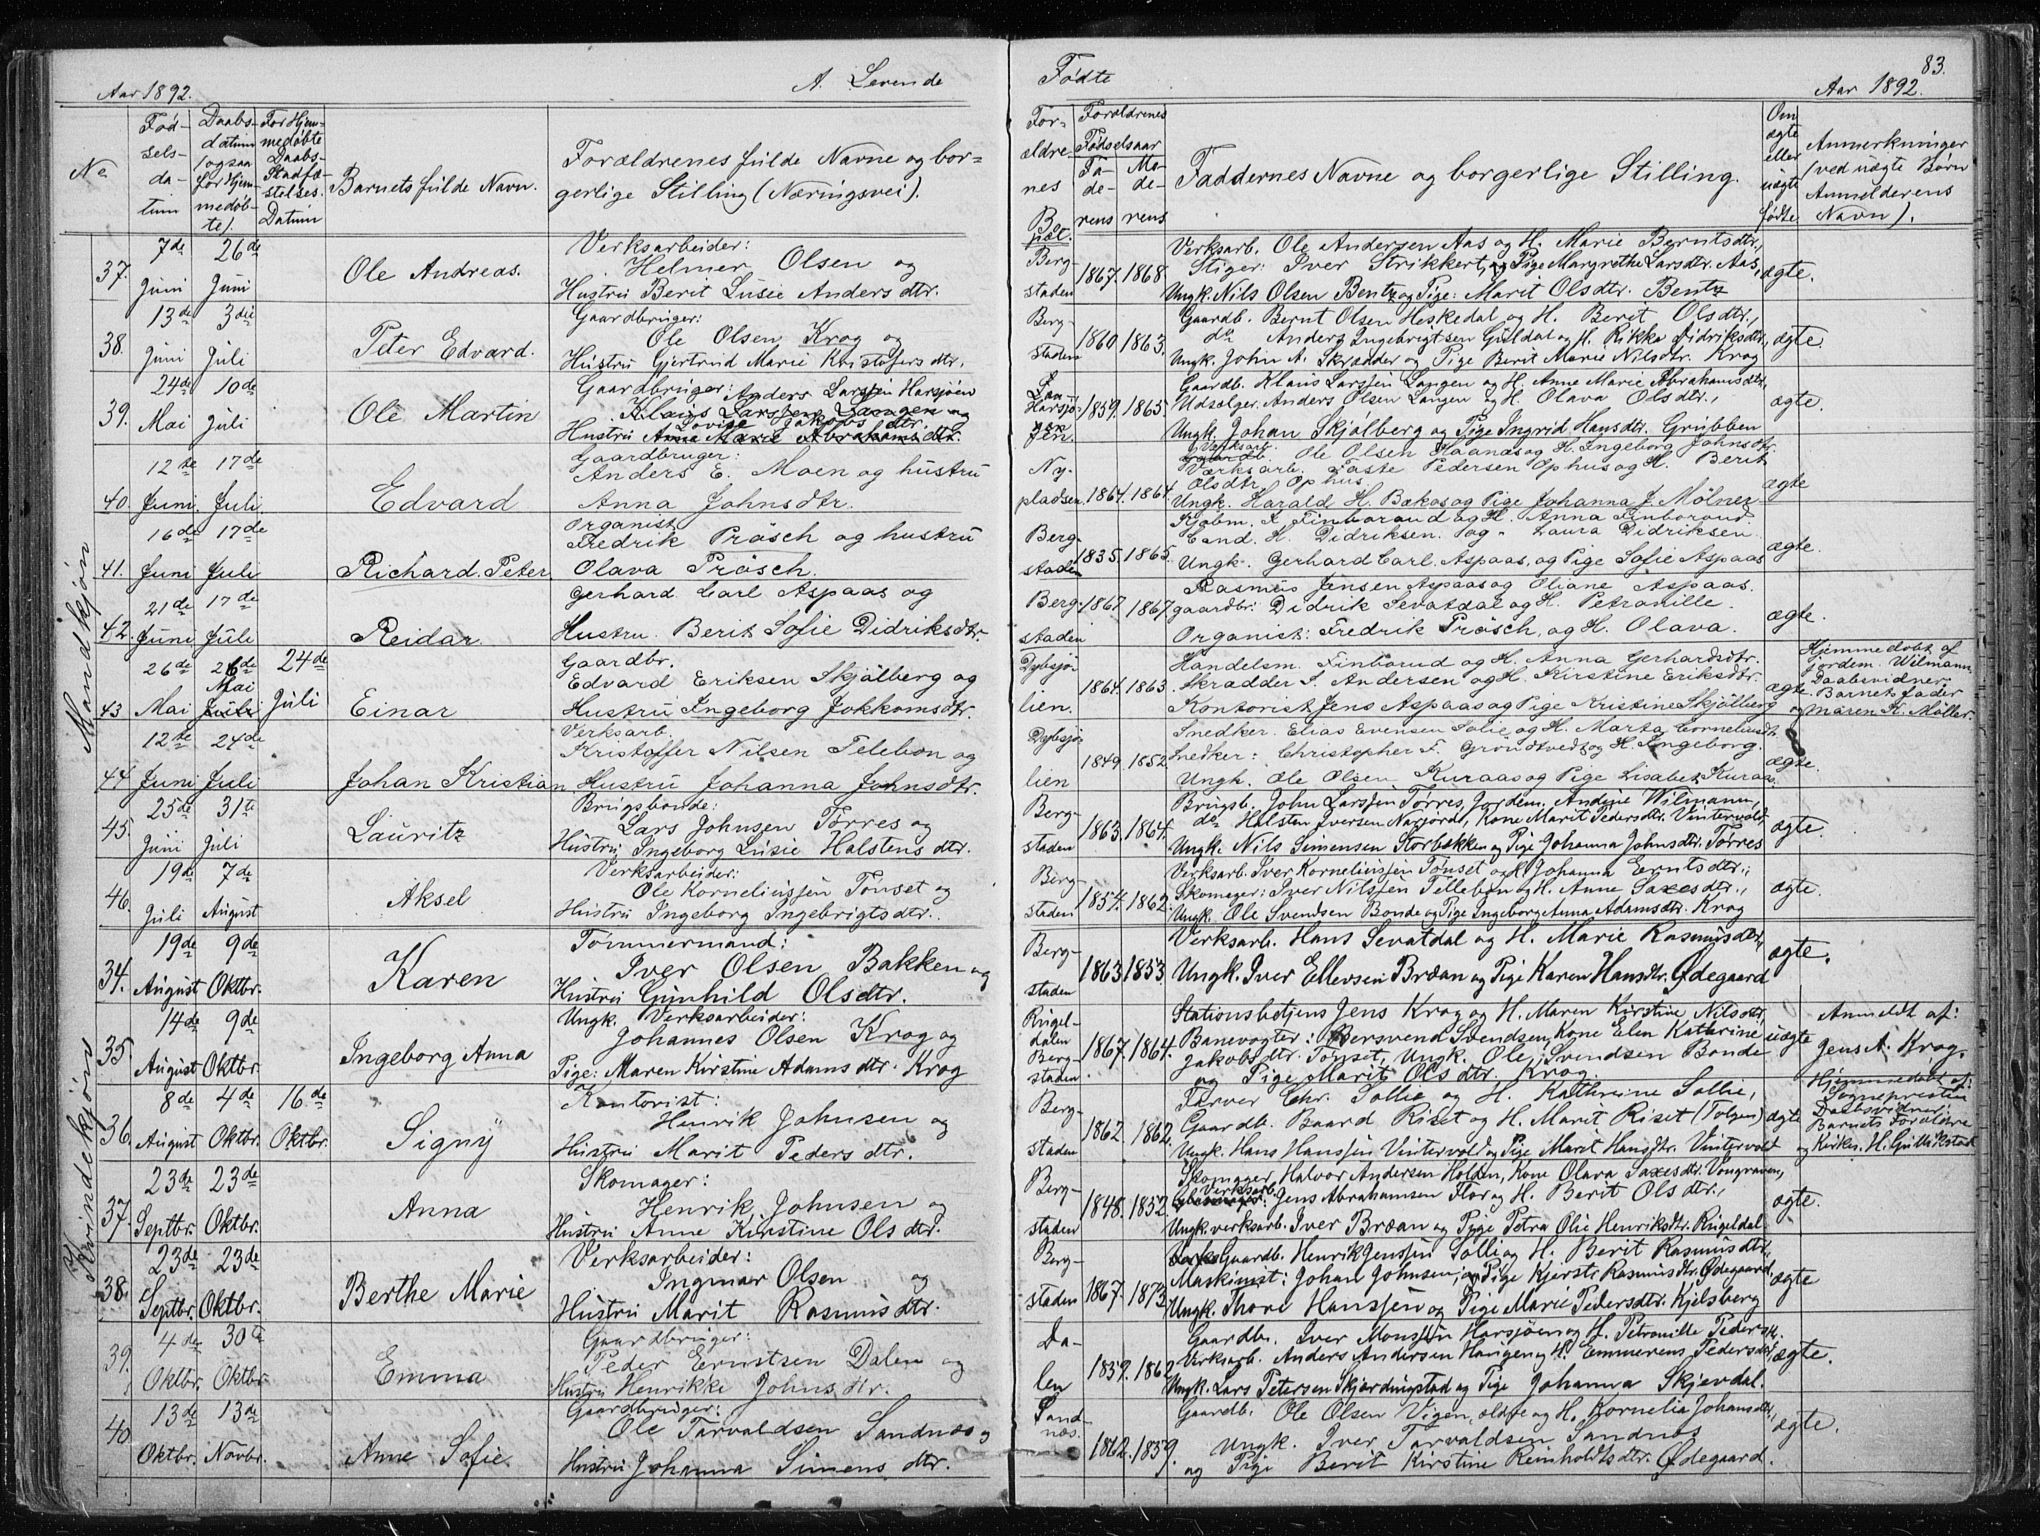 Aar 1892.
A. Levende
Fødte
Aar 1892.
83.
No
Fød-
sels-
da-
tum
Daabs-
datum
(ogsaa
for Hjem-
medøb-
te).
For Hjem-
medøbte
Daabs-
Stadfæ-
stelses-
Datum
Barnets fulde Navn.
Forældrenes fulde Navne og bor-
gerlige Stilling (Næringsvei).
For-
ældre-
nes
Bo-
pæl.
Forældrenes
Fødselsaar
Fa-
de-
rens
Mo-
de-
rens
Faddernes Navne og borgerlige Stilling.
Om
ægte
eller
uægte
fødte
Anmerkninger
(ved uægte Børn
Anmelderens
Navn).
Mandkjøn
37.
7de Juni
26de Juni
Ole Andreas.
Verksarbeider:
Helmer Olsen og
Hustru Berit Lusie Andersdtr.
Berg-
staden
1867. 1868.
Verksarb. Ole Andersen Aas og H. Marie Berntsdtr,
Stiger: Iver Strikkert, og Pige Margrethe Larsdtr. Aas,
Ungk. Nils Olsen Bentz og Pige: Marit Olsdtr. Bentz
ægte.
38.
13de Juni
3die Juli
Peter Edvard.
Gaardbruger:
Ole Olsen Krog og
Hustru Gjertrud Marie Kristofersdtr.
Berg-
staden
1860. 1863.
Gaardb. Bernt Olsen Heskedal og H. Berit Olsdtr.,
do Anders Ingebrigtsen Guldal og H. Rikka Didriksdtr,
Ungk. John A. Skrædder og Pige Berit Marie Nilsdtr. Krog
ægte.
39.
24de Mai
10de Juli
Ole Martin
Gaardbruger: Anders Larssen Harsjøen
Klaus Larssen Langen og
Lovise Jakobs dtr.
Hustru Anna Marie Abrahams dtr.
Harsjø-
en
1859. 1865.
Gaardb. Klaus Larssen Langen og H. Anne Marie Abrahamsdtr,
Udsalger. Anders Olsen Langen og H. Olava Olsdtr.,
Ungk. Johan Skjølberg og Pige Ingrid Hansdtr. Grubben
ægte.
40.
12te Juni.
17de Juli.
Edvard
Gaardbruger:
Anders E. Moen og hustru
Anna Johnsdtr.
Ny-
pladsen.
1864. 1864.
Verksarb.
Ole Olsen Haanæs og H. Ingeborg Johnsdtr.
Værksarb. Taste Pedersen Ophus og H. Berit
Olsdtr. Ophus.
Ungk. Harald H. Bækos og Pige Johanna J. Mölner
ægte
41.
16de Juni
17de Juli
Richard. Peter.
Organist
Fredrik Prösch og hustru
Olava Prösch.
Berg-
staden
1835. 1865.
Kjøbm. I. Finborud og H. Anna Finborud.
Cand. K. Didriksen. og Laura Didriksen
Ungk. Gerhard Carl. Aspaas, og Pige Sofie Aspaas
ægte.
42.
21de Juni
17de Juli
Reidar
Gerhard Carl Aspaas og
Hustru. Berit Sofie Didriksdtr.
Berg-
staden
1867. 1867.
Rasmus Jensen Aspaas og Oliane Aspaas.
gaardbr: Didrik Sevatdal og H. Petronille.
Organist: Fredrik Prösch, og H. Olava.
ægte.
43
26de Mai
26de Mai Juli
24de Juli
Einar
Gaardbr.
Edvard Eriksen Skjölberg og
Hustru Ingeborg Jokkomsdtr.
Dybsjø-
lien.
1864. 1863.
Handelsm. Finborud og H. Anna Gerhardsdtr.
Skrædder J. Andersen og H. Kirstine Eriksdtr.
Kontorist Jens Aspaas og Pige Kristine Skjølberg
ægte.
Hjemmedøbt af
Jordem. Wilmann.
Daabsvidner.
Barnets fader
og Maren K. Møller.
44
12te Juni
24de Juli
Johan Kristian
Verksarb.
Kristoffer Nilsen Telebon og
Hustru Johanna Johnsdtr.
Dybsjø-
lien
1849. 1852.
Snedker. Elias Evensen Solie og H. Marta Corneliusdt.
Snedker: Christopher F. Gröndtvedt og H. Ingeborg.
Ungk. Ole Olsen Kuraas og Pige Lisabet Kuraas.
ægte.
45.
25de Juni
31te Juli
Lauritz
Brugsbonde:
Lars Johnsen Tørres og
Hustru Ingeborg Lusie Halstensdtr.
Berg-
staden
1863. 1864.
Brugsb. John Larssen Tørres, Jordem. Andine Wilmann,
do Halsten Iversen Narjordt, Kone Marit Pedersdtr. Vintervold
Ungk. Nils Simensen Storbækken og Pige Johanna Johnsdtr. Tørres
ægte.
46.
19de Juli
7de August
Aksel
Verksarbeider:
Ole Korneliussen Tønset og
Hustru Ingeborg Ingebrigtsdtr.
Berg-
staden
1854. 1862.
Verksarb. Iver Korneliussen Tønset og H. Johanna Erntsdtr.;
Skomager: Iver Nilssen Tellebon og H. Anne Saxesdtr.,
Ungk. Ole Svendsen Bonde og Pige Ingeborg Anna Adamsdtr. Krog
ægte.
Kvindekjøn
34.
19de August
9de Oktbr.
Karen
Tømmermand:
Iver Olsen Bakken og
Hustru Gunhild Olsdtr.
Berg-
staden
1863. 1853
Verksarb. Hans Sevatdal og H. Marie Rasmusdtr,
Ungk. Iver Ellevsen Bræan og Pige Karen Hansdtr. Ødegaard
ægte.
35.
14de August
9de Oktbr.
Ingeborg Anna
Ungk. Verksarbeider:
Johannes Olsen Krog og
Pige: Maren Kirstine Adamsdtr. Krog
Ringel-
dalen
Berg-
staden
1867. 1864.
Stationsbetjens Jens Krog og H. Maren Kirstine Nilsdtr,
Banevogter: Bersvend Svendsen, Kone Elen Kathrine
Jakobsdtr. Tønset, Ungk. Ole Svendsen Bonde
og Pige Marit Olsdtr. Krog.
uægte
Anmeldt af:
Jens A. Krog.
36.
8de August
4de Oktbr.
16.de Oktbr.
Signy
Kontorist:
Henrik Johnsen og
Hustru Marit Pedersdtr.
Berg-
staden
1862. 1862.
Farver Chr. Sollie og H. Kathrine Sollie,
Gaardb. Baard Riset og H. Marit Riset (Tolgen)
Ungk. Hans Hanssen Vintervold og Pige Maret Hansdtr. Vintervold
ægte
Hjemmedøbt af:
Sognepresten
Daabsvidner:
Barnets Forældre
og Kirkes. H. Gullikstad
37.
23de Septbr.
23de Oktbr.
Anna
Skomager:
Henrik Johnsen og
Hustru Anne Kirstine Olsdtr.
Berg-
staden
1848. 1852.
Skomager, Halvor Andersen Holden, Kone Olava Saxesdtr. Vongraven,
Verksarb. Jens Abrahamsen Flor og H. Berit Olsdtr.,
Ungk verksarb. Iver Bræan og Pige Petra Olie Henriksdtr. Ringeldal
ægte.
38.
23de Septbr.
23de Oktbr.
Berthe Marie
Verksarbeider:
Ingmar Olsen og
Hustru Marit Rasmusdtr.
Berg-
staden
1867. 1873.
Gaardb. Henrik Jenssen Solli og H. Berit Rasmusdtr.,
Maskinist: Johan Johnsen, og Pige Kjersti Rasmusdtr. Ødegaard,
Ungk. Thore Hanssen og Pige Marie Pedersdtr. Kjelsberg
ægte
39.
4de Oktbr.
30te Oktbr
Emma
Gaardbruger:
Peder Erntsen Dalen og
Hustru Henrikke Johnsdtr.
Da-
len
1839. 1862
Gaardb. Iver Monssen Harsjøen og H. Petronille Peders
Verksarb. Anders Andersen Haugen og H. Emmerens Pedersdtr,
Ungk. Lars Petersen Skjardingstad og Pige Johanna Skjevdal.
ægte.
40
13de Oktbr.
13de Novbr.
Anne Sofie
Gaardbruger:
Ole Tarvaldsen Sandnæs og
Hustru Johanna Simensdtr.
Sand-
næs.
1862. 1859.
Gaardb. Ole Olsen Vigen, ældre og H. Kornelia Johansdtr,
Ungk. Iver Tarvaldsen Sandnæs
og Pige Berit Kirstine Reinholdtsdtr. Ødegaard.
ægte.